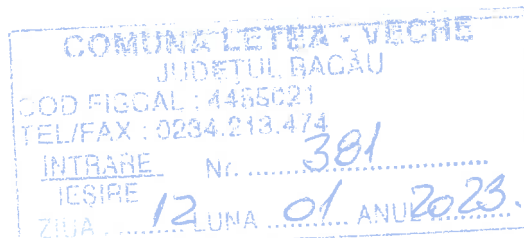 COMUNA LETEA - VECHE
JUDEȚUL BACĂU
COD FISCAL : 4455021
TEL/FAX : 0234.213.474
INTRARE Nr. ........ 381 ................
IEȘIRE
ZIUA ...... 12 LUNA ... 01 .... ANUL 2023.